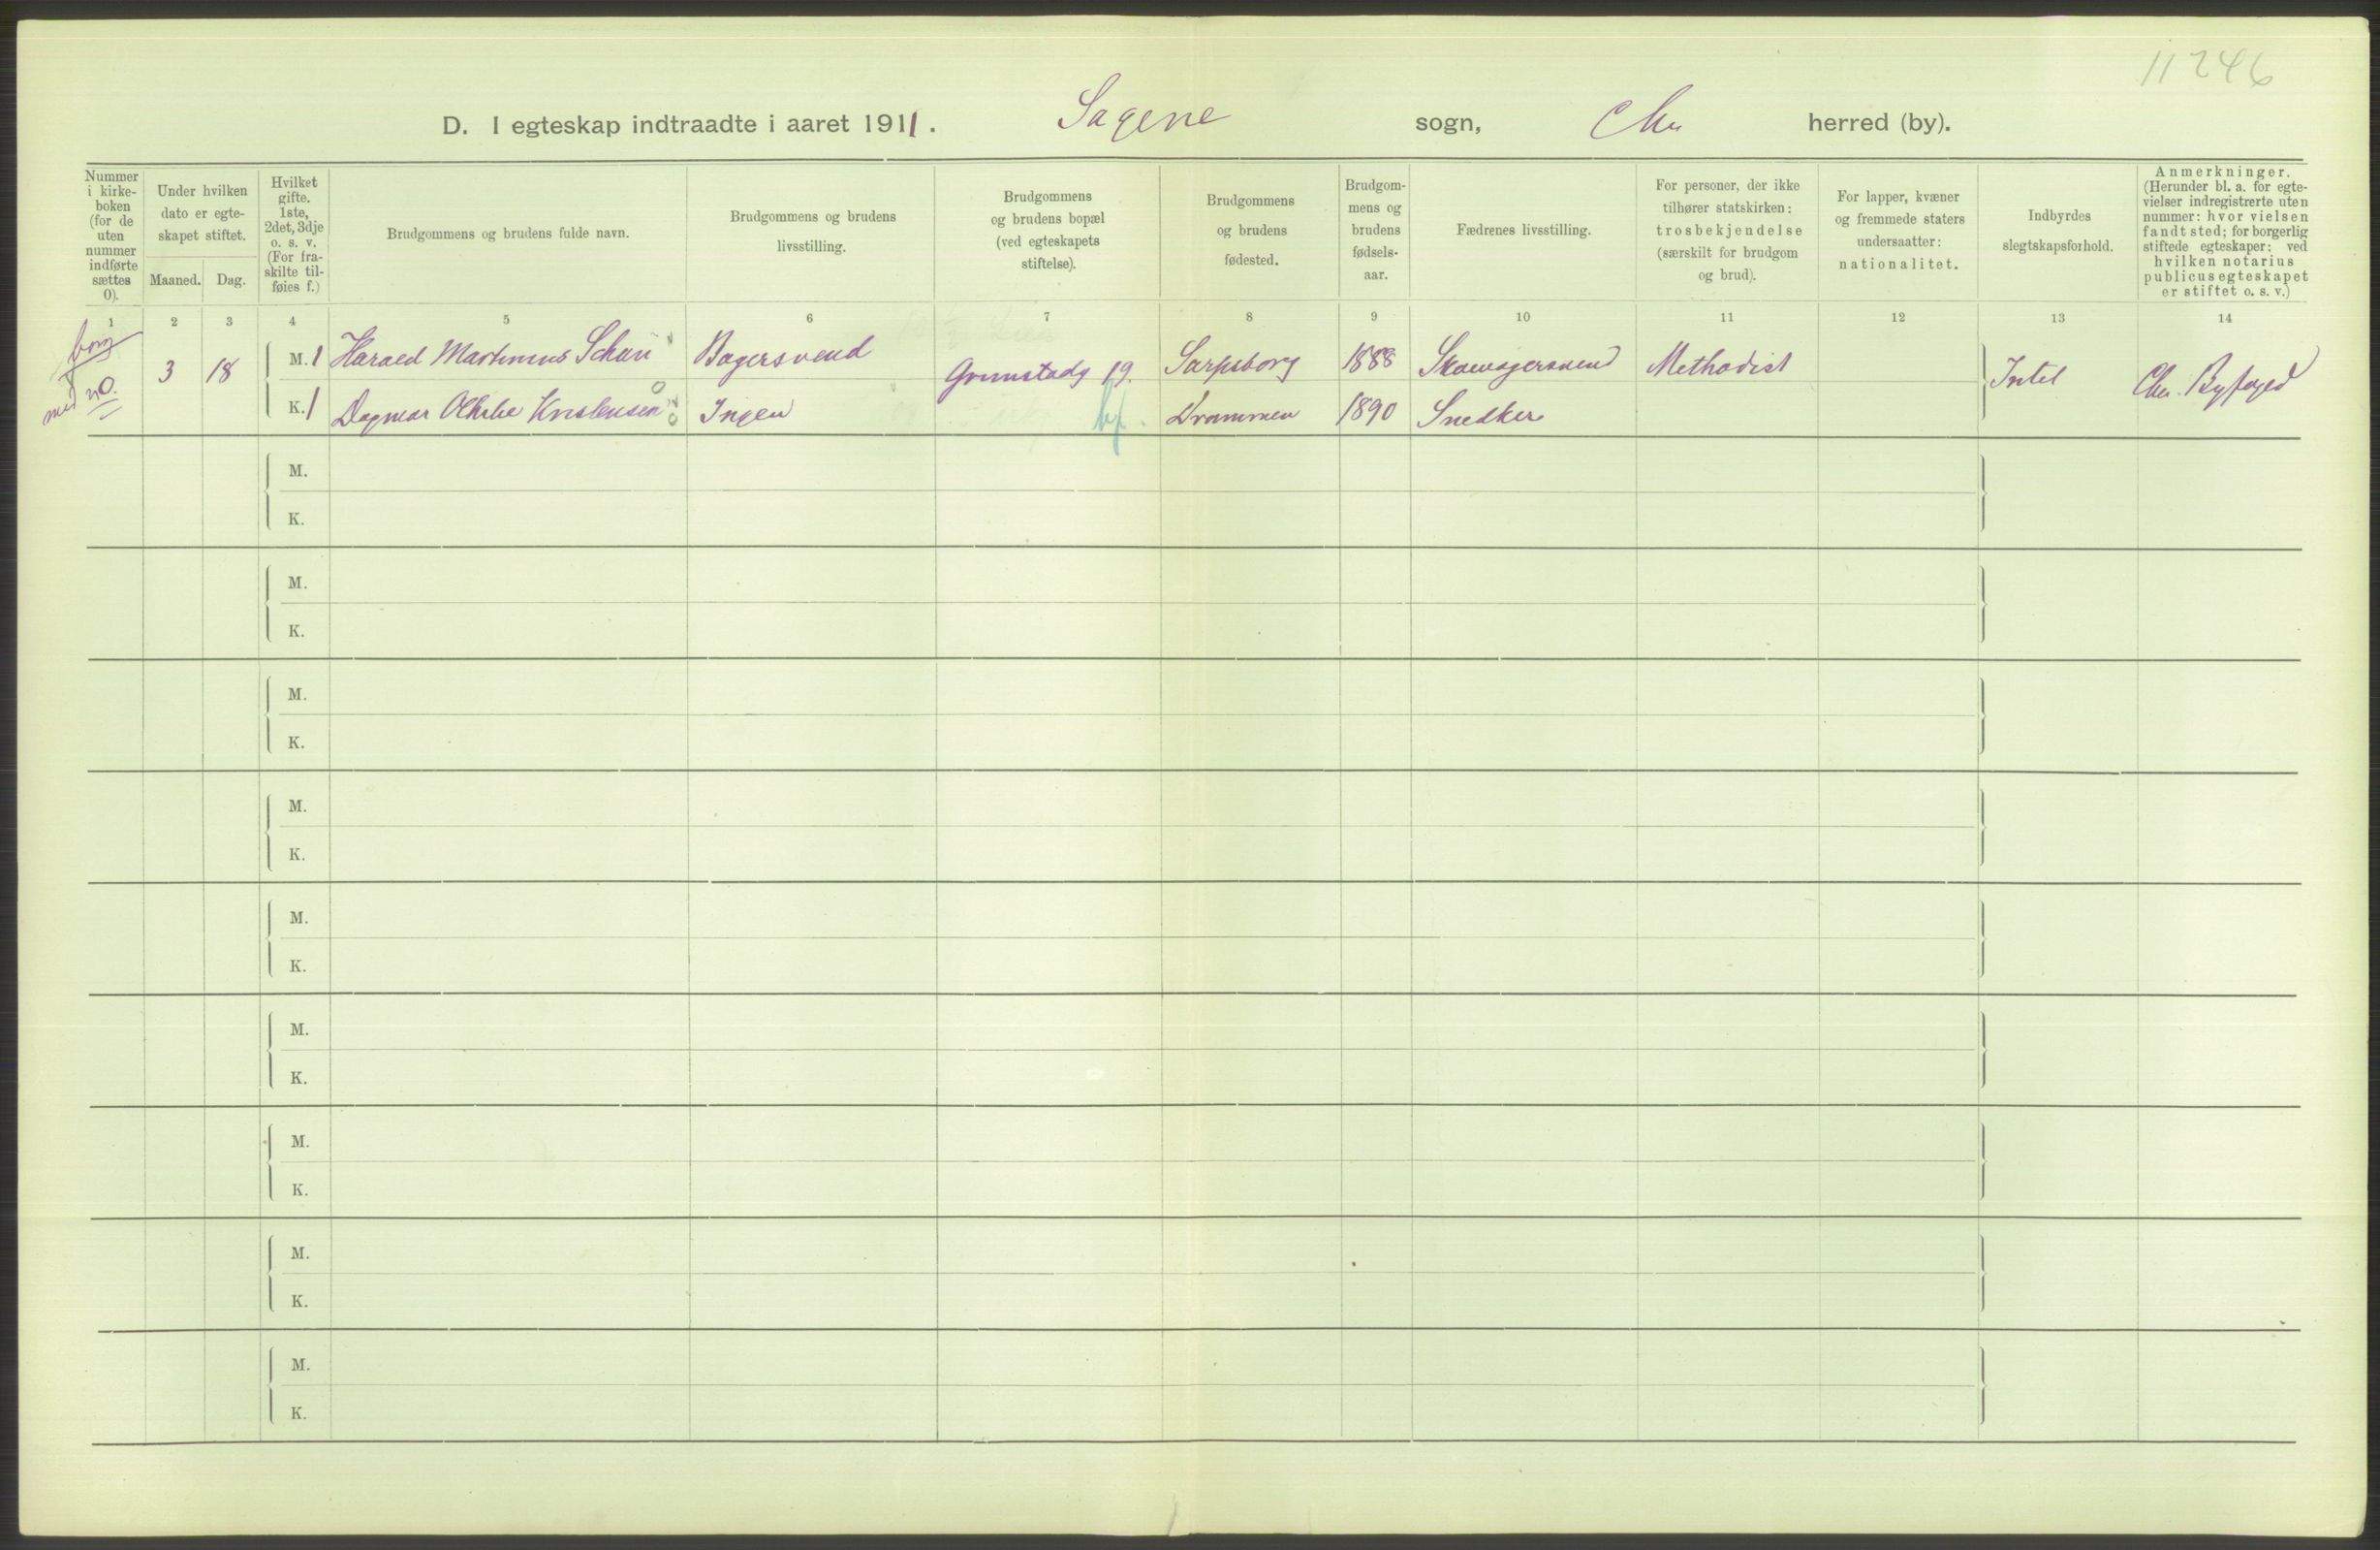 11246
D. I egteskap indtraadte i aaret 1911. Sagene sogn, Chr herred (by).
Nummer i kirke-boken (for de uten nummer indførte sættes 0).
Under hvilken dato er egte-skapet stiftet.
Maaned. Dag.
Hvilket gifte. 1ste, 2det, 3dje o. s. v. (For fra-skilte til-føies f.)
Brudgommens og brudens fulde navn.
Brudgommens og brudens livsstilling.
Brudgommens og brudens bopæl (ved egteskapets stiftelse).
Brudgommens og brudens fødested.
Brudgom-mens og brudens fødsels-aar.
Fædrenes livsstilling.
For personer, der ikke tilhører statskirken: trosbekjendelse (særskilt for brudgom og brud).
For lapper, kvæner og fremmede staters undersaatter: nationalitet.
Indbyrdes slegtskapsforhold.
Anmerkninger. (Herunder bl. a. for egte-vielser indregistrerte uten nummer: hvor vielsen fandt sted; for borgerlig stiftede egteskaper: ved hvilken notarius publicus egteskapet er stiftet o. s. v.)
1 2 3 4 5 6 7 8 9 10 11 12 13 14
borg
3 18 M. 1 Harald Martinius Bagersvend Grimstadg 19. Sarpsborg 1888 Methodist Intet Chr. Byfoged
K. 1 Dagmar Kristensen Ingen Drammen 1890 Snedker
M.
K.
M.
K.
M.
K.
M.
K.
M.
K.
M.
K.
M.
K.
M.
K.
M.
K.